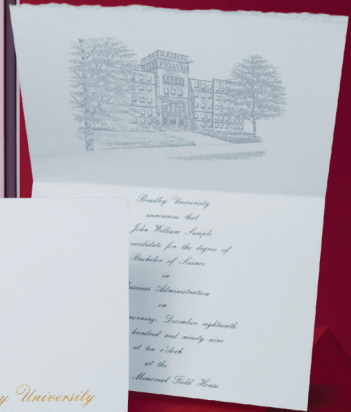 Bradley University
announces that
John William Sample
candidate for the degree of
Bachelor of Science
in
Business Administration
on
morning, December eighteenth
hundred and ninety-nine
at ten o'clock
at the
Memorial Field House
y University